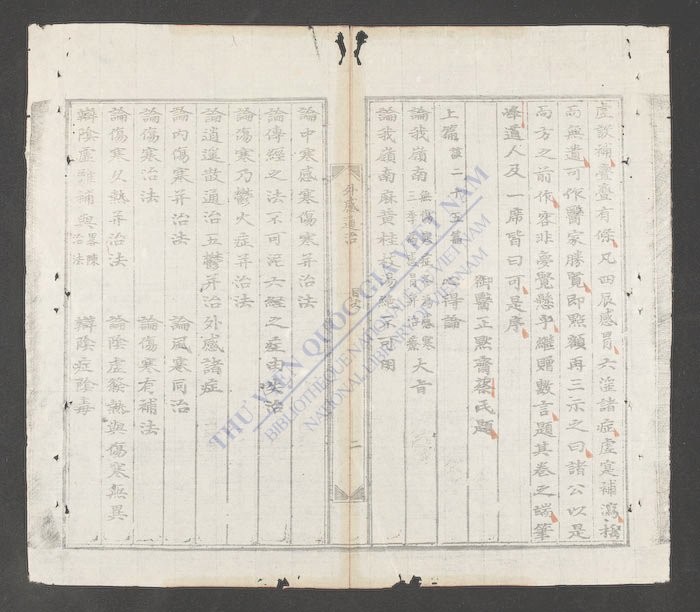 虛談補亹亹有條凡四辰感冒六淫諸症虛寔補瀉稍
而無遺可作醫家勝覽即點額再三示之曰諸公以是
而方之前作容非夢覺懸乎繼贈數言題其卷之端筆
峰道人及一席皆曰可是序
御醫正默齋蔡氏題
上篇 二十五篇
心得論
論我嶺南無傷寒症 大旨
論我嶺南麻黄桂枝 不可用
外感通治
二
論中寒感寒傷寒并治法
論傳經之法不可泥六經之症由失治
論傷寒乃鬱火症并治法
論逍遥散通治五鬱并治外感諸症
論内傷寒并治法
論風寒同治
論傷寒治法
論傷寒有補法
論傷寒久熱并治法
論陰虛發熱與傷寒無異
辯陰虛雖補與畧陳治法
辯陰症陰毒
THƯ VIỆN QUỐC GIA VIỆT NAM
BIBLIOTHÈQUE NATIONALE DU VIETNAM
NATIONAL LIBRARY OF VIETNAM